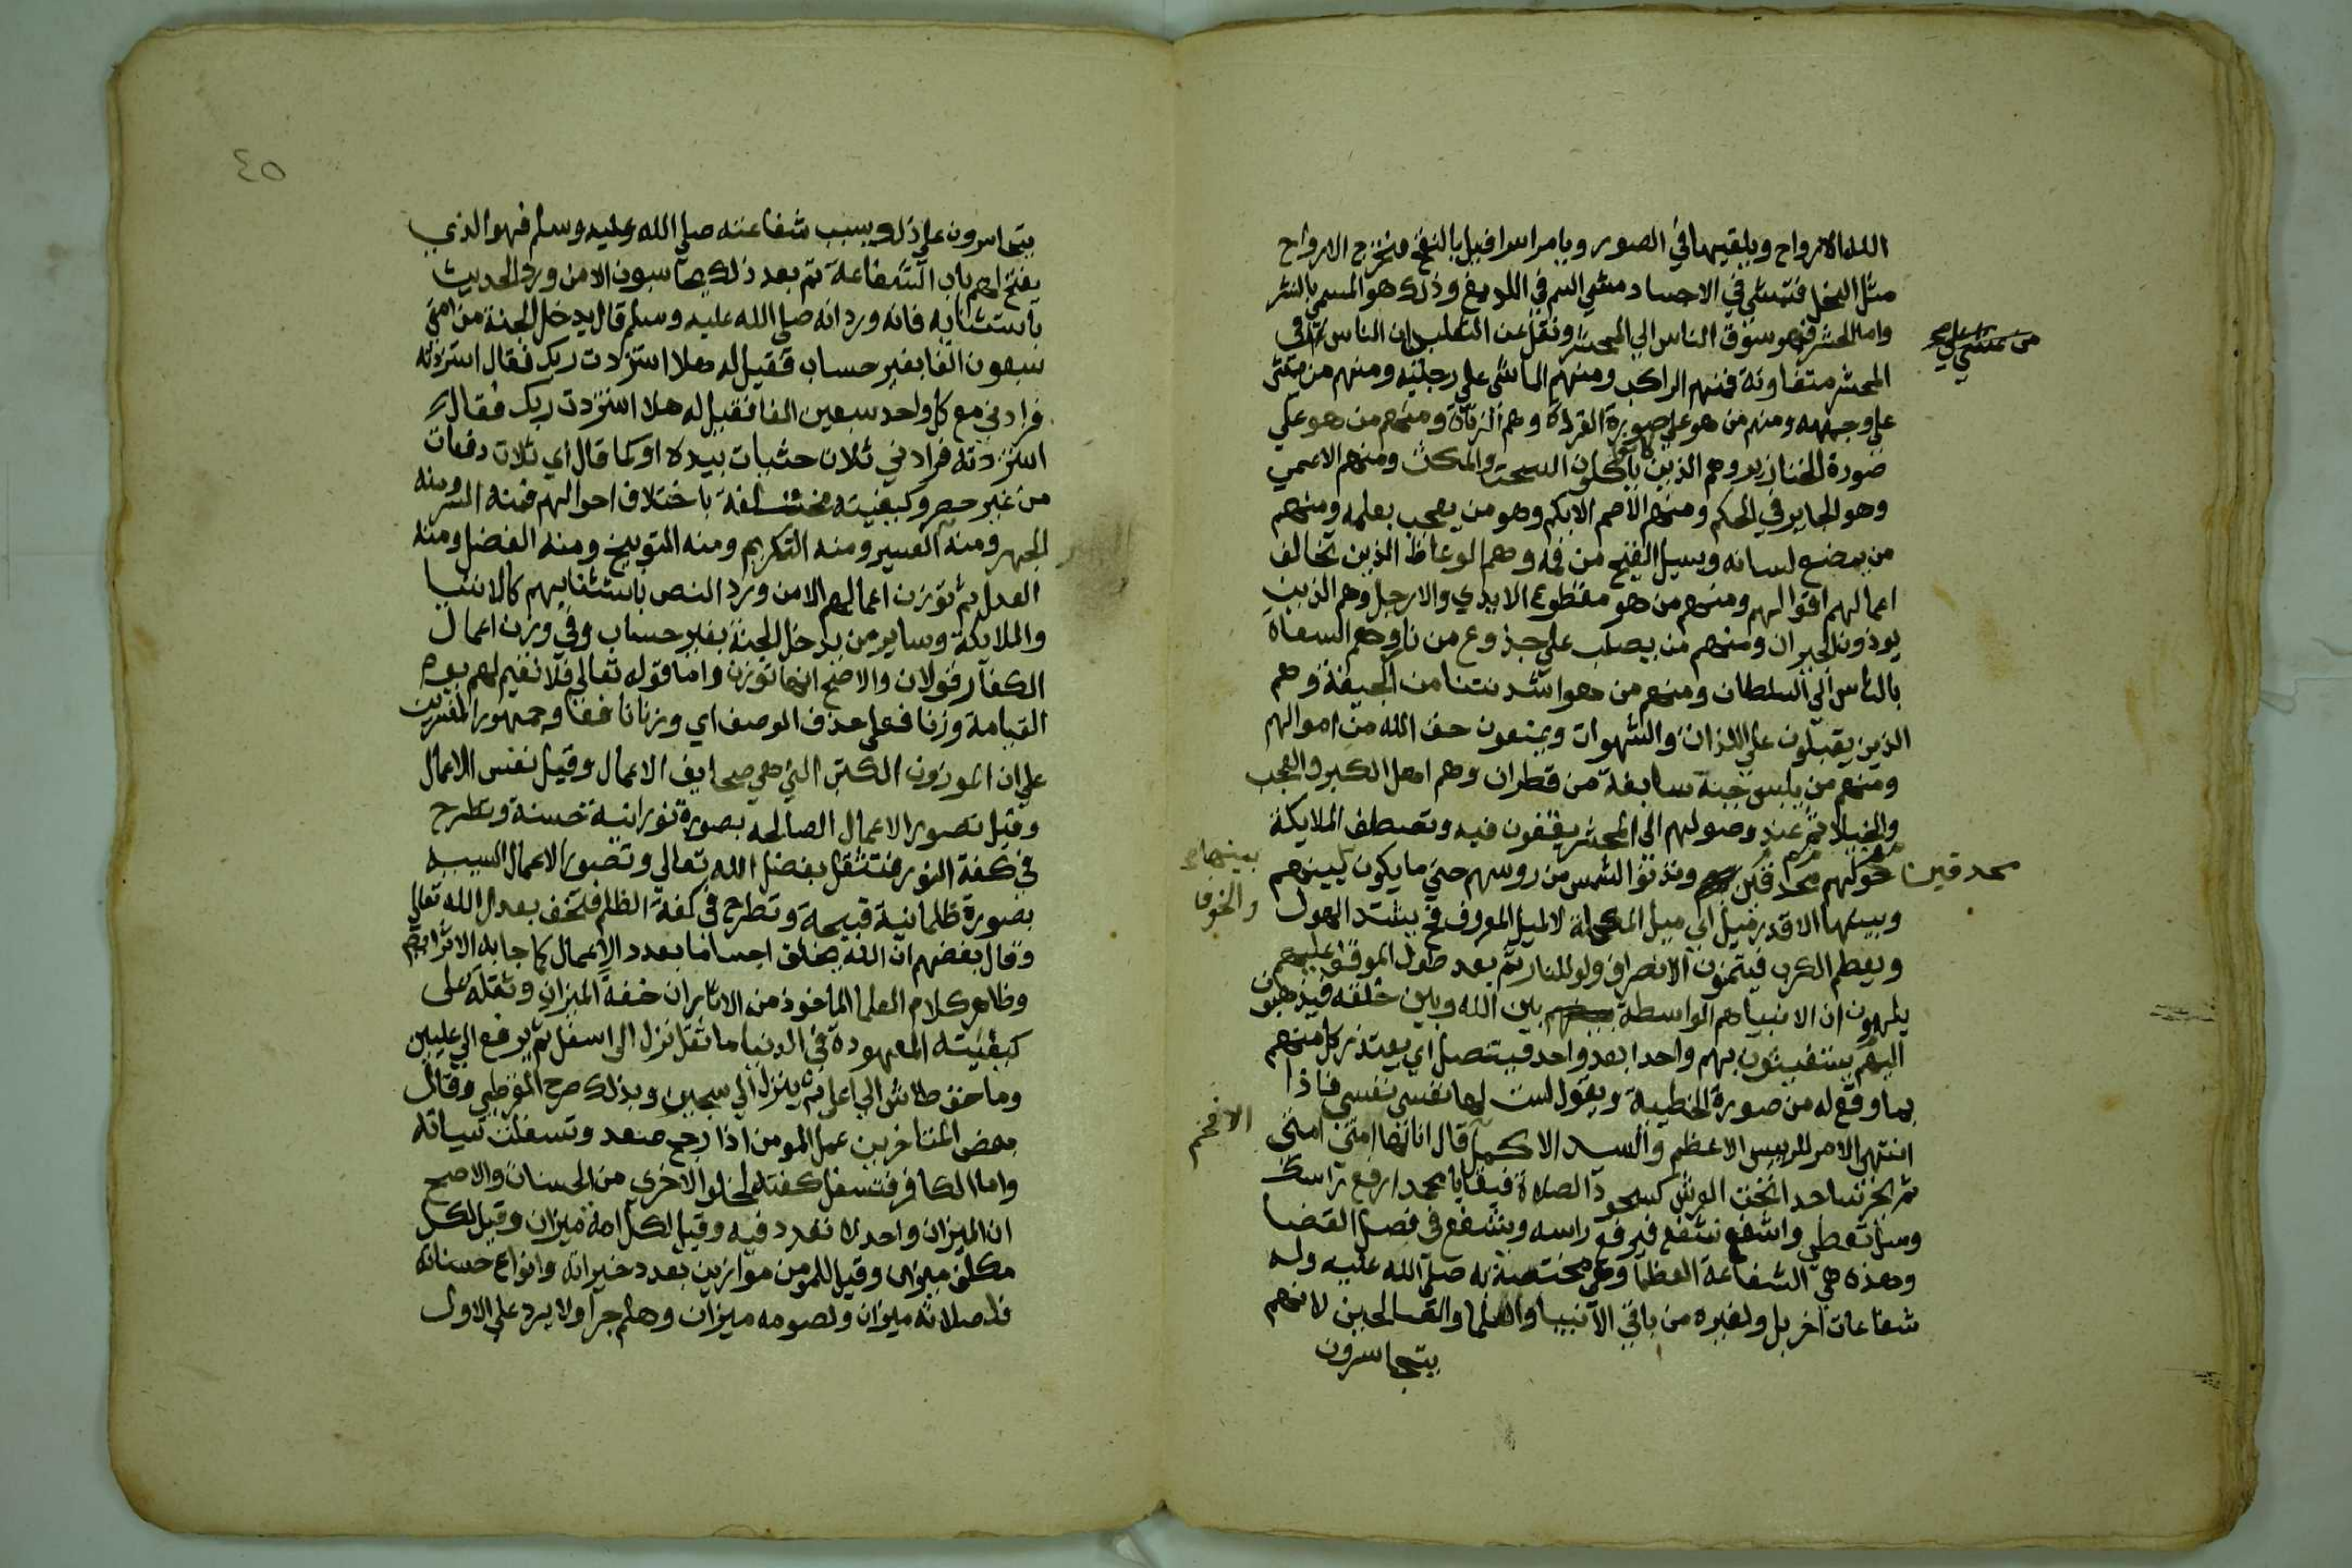 الله الارواح ويلقيها في الصور ويامر اسرافيل بالنفخ فتخرج الارواح
مثل النحل فتمشي في الاجساد مشي السم في اللديغ وذلك هو المسمي بالنشر
واما الحشر فهو سوق الناس الي المحشر ونقل عن الثعلبي ان الناس في
المحشر متفاوتة فمنهم الراكب ومنهم الماشي علي رجليه ومنهم من يمشي
من يمشي علي
علي وجهه ومنهم من هو علي صورة القردة وهم الزناة ومنهم من هو علي
صورة الخنازير وهم الذين ياكلون السحت والمكث ومنهم الاعمي
وهو الجاير في الحكم ومنهم الاصم الابكم وهو من يعجب بعلمه ومنهم
من يمضغ لسانه ويسيل القيح من فمه وهم الوعاظ الذين تخالف
اعمالهم اقوالهم ومنهم من هو مقطوع الايدي والارجل وهم الذين
يوذون الجيران ومنهم من يصلب علي جذوع من نار وهم السعاة
بالناس الي السلطان ومنهم من هو اشد نتنا من الجيفة وهم
الذين يقبلون علي اللذات والشهوات ويمنعون حق الله من اموالهم
ومنهم من يلبس جبة سابغة من قطران وهم اهل الكبر والعجب
والخيلا ثم عند وصولهم الي المحشر يقفون فيه وتصطف الملايكة
حولهم محدقين وتدنو الشمس من روسهم حتي ما يكون بينهم
محدقين
بينها
والخوف
وبينها الا قدر ميل اي ميل المكحلة لا الميل المعروف فيشتد الهول
ويعظم الكرب فيتمنون الانصراف ولو للنار ثم بعد طول الموقف عليهم
يلهمون ان الانبيا هم الواسطة بين الله وبين خلقه فيذهبون
اليهم يستغيثون بهم واحدا بعد واحد فيتنصل اي يعتذر كل منهم
بما وقع له من صورة الخطية ويقول لست لها نفسي نفسي فاذا
انتهي الامر للرييس الاعظم والسيد الاكمل قال انا لها امتي امتي
الافخم
ثم يخر ساجدا تحت العرش كسجود الصلاة فيقال يا محمد ارفع راسك
وسل تعطي واشفع تشفع فيرفع راسه ويشفع في فصل القضا
وهذه هي الشفاعة العظما وهي مختصة به صلي الله عليه وله
شفاعات اخر بل ولغيره من باقي الانبيا والعلما والصالحين لانهم
يتجاسرون
٤٥
يتجاسرون علي ذلك بسبب شفاعته صلي الله عليه وسلم فهو الذي
يفتح لهم باب الشفاعة ثم بعد ذلك يحاسبون الا من ورد الحديث
باستثنايه فانه ورد انه صلي الله عليه وسلم قال يدخل الجنة من امتي
سبعون الفا بغير حساب فقيل له هلا استزدت ربك فقال استزدته
فزادني مع كل واحد سبعين الفا فقيل له هلا استزدت ربك فقال
استزدته فزادني ثلاث حثيات بيده او كما قال اي ثلاث دفعات
من غير حصر وكيفيته مختلفة باختلاف احوالهم فمنه السر ومنه
الجهر ومنه العسير ومنه التكريم ومنه التوبيخ ومنه الفضل ومنه
العدل ثم توزن اعمالهم الا من ورد النص باستثنايهم كالانبيا
والملايكة وساير من يدخل الجنة بغير حساب وفي وزن اعمال
الكفار قولان والاصح انها توزن واما قوله تعالي فلا نقيم لهم يوم
القيامة وزنا فعلي حذف الوصف اي وزنا نافعا وجمهور المفسرين
علي ان الموزون الكتب التي هي صحايف الاعمال وقيل نفس الاعمال
وقيل تصور الاعمال الصالحه بصورة نورانية حسنة وتطرح
في كفة النور فتثقل بفضل الله تعالي وتصور الاعمال السييه
بصورة ظلمانية قبيحة وتطرح في كفة الظلم فتخف بعدل الله تعالي
وقال بعضهم ان الله يخلق اجساما بعدد الاعمال كما جا به الاثر
وظاهر كلام العلما الماخوذ من الاثار ان خفة الميزان وثقله علي
كيفيته المعهودة في الدنيا ما ثقل نزل الي اسفل ثم يرفع الي عليين
وما خف طاش الي اعلي ثم ينزل الي سجين وبذلك صرح القرطبي وقال
بعض المتاخرين عمل المومن اذا رجح صعد وتسفلت سياته
واما الكافر فتسفل كفته لخلو الاخري من الحسنات والاصح
ان الميزان واحد لا تعدد فيه وقيل لكل امة ميزان وقيل لكل
مكلف ميزان وقيل للمومن موازين بعدد خيراته وانواع حسناته
فلصلاته ميزان ولصومه ميزان وهلم جرا ولا يرد علي الاول